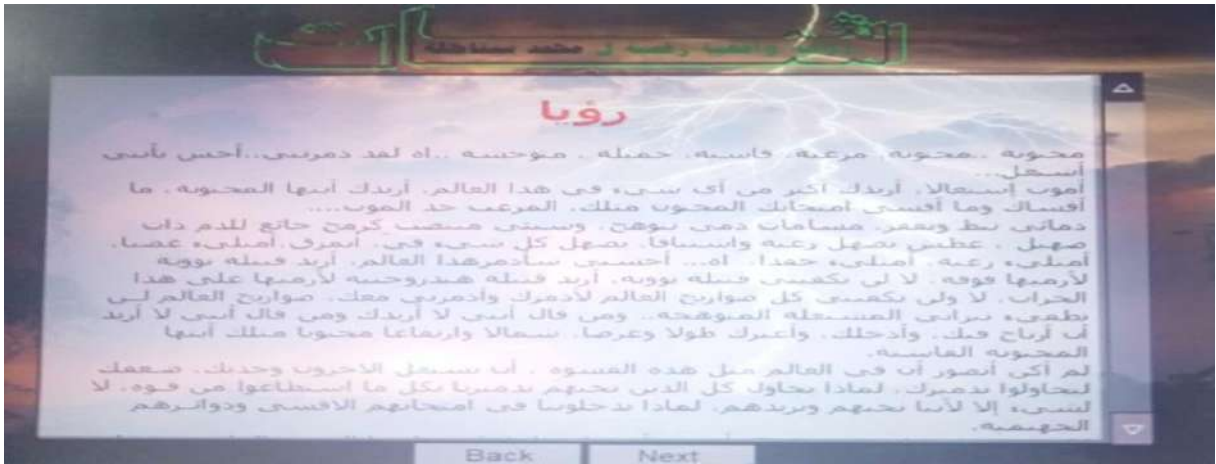 رواية واقعية رقمية ل محمد سناجلة
رؤيا
مجنونة ..مجنونة، مرعبة، قاسية، جميلة ، متوحشة ..اه لقد دمرتني..أحس بأنني
أشتعل...
أموت إشتعالا، أريدك أكثر من أي شيء في هذا العالم، أريدك أيتها المجنونة، ما
أقساك وما أقسى امتحانك المجنون مثلك، المرعب حد الموت....
دمائي تنط وتقفز، مسامات دمي تتوهج، وسيتي منتصب كرمح جائع للدم ذات
صهيل ، عطش يصهل رغبة واشتياقا، يصهل كل شيء في، أتمزق،أمتليء غضبا،
أمتليء رغبة، أمتليء حقدا، اه... أحسني سأدمرهذا العالم، أريد قنبلة نووية
لأرميها فوقه، لا لن تكفيني قنبلة نووية، أريد قنبلة هيدروجينية لأرميها على هذا
الخراب، لا ولن تكفيني كل صواريخ العالم لأدمرك وأدمرني معك، صواريخ العالم لن
تطفيء نيراني المشتعلة المتوهجة.. ومن قال أنني لا أريدك ومن قال أنني لا أريد
أن أرتاح فيك، وأدخلك، وأعبرك طولا وعرضا، شمالا وارتفاعا مجنونا مثلك أيتها
المجنونة القاسية.
لم أكن أتصور أن في العالم مثل هذه القسوة ، أن يستغل الاخرون وحدتك، ضعفك
ليحاولوا تدميرك، لماذا يحاول كل الذين نحبهم تدميرنا بكل ما استطاعوا من قوة، لا
لشيء إلا لأننا نحبهم ونريدهم، لماذا يدخلوننا في امتحانهم الاقسى ودوائرهم
الجهنمية.
Back Next